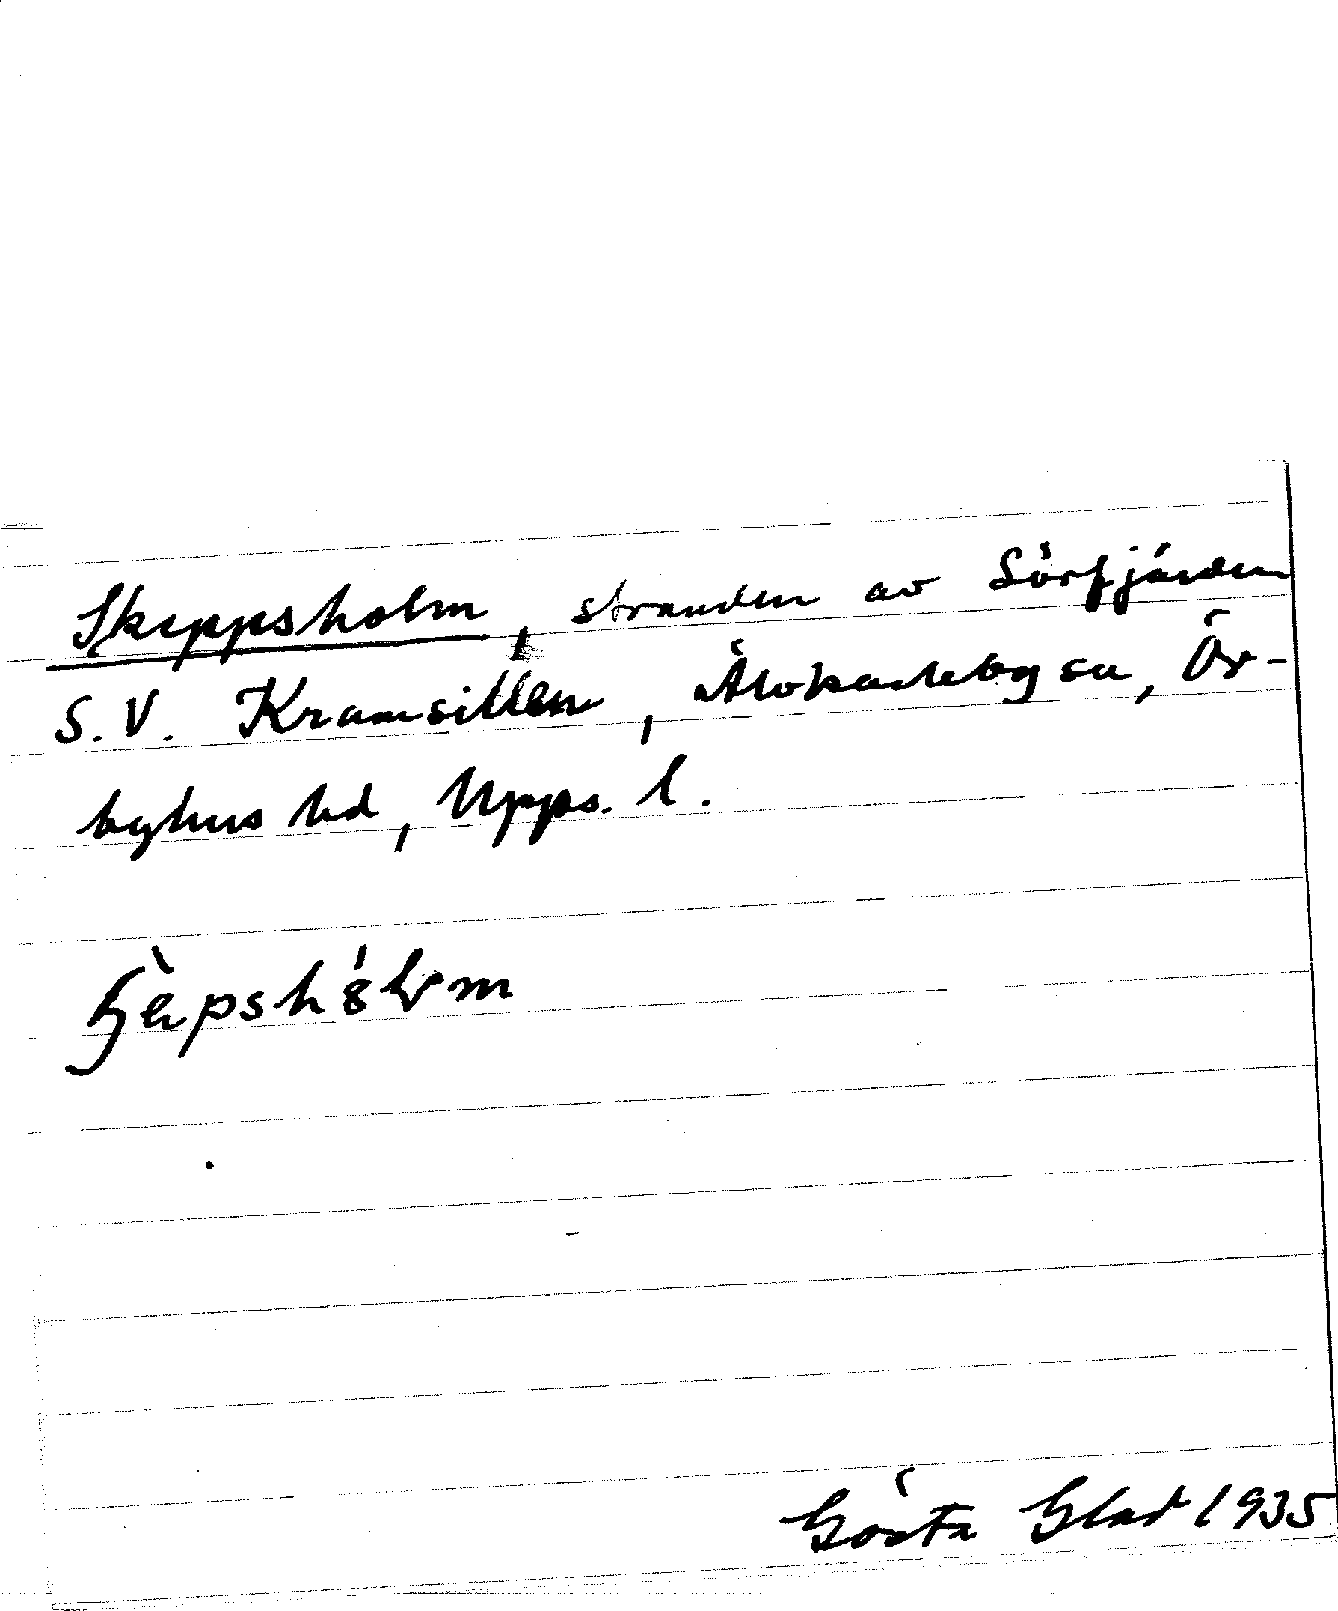 Skeppsholm, stranden av Sörfjärden
S.V. Kramsillen, Älvkarleby sn, Ör-
byhus hd, Upps. l.
Gösta Glad 1935